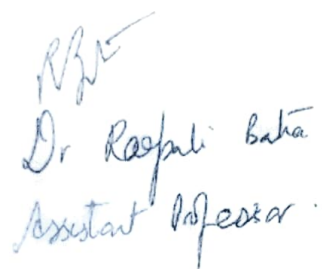 Dr Roopali Batra
Assistant Professor.